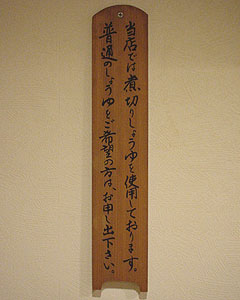 当店では煮切りしょうゆを使用しております。
普通のしょうゆをご希望の方は、お申し出下さい。